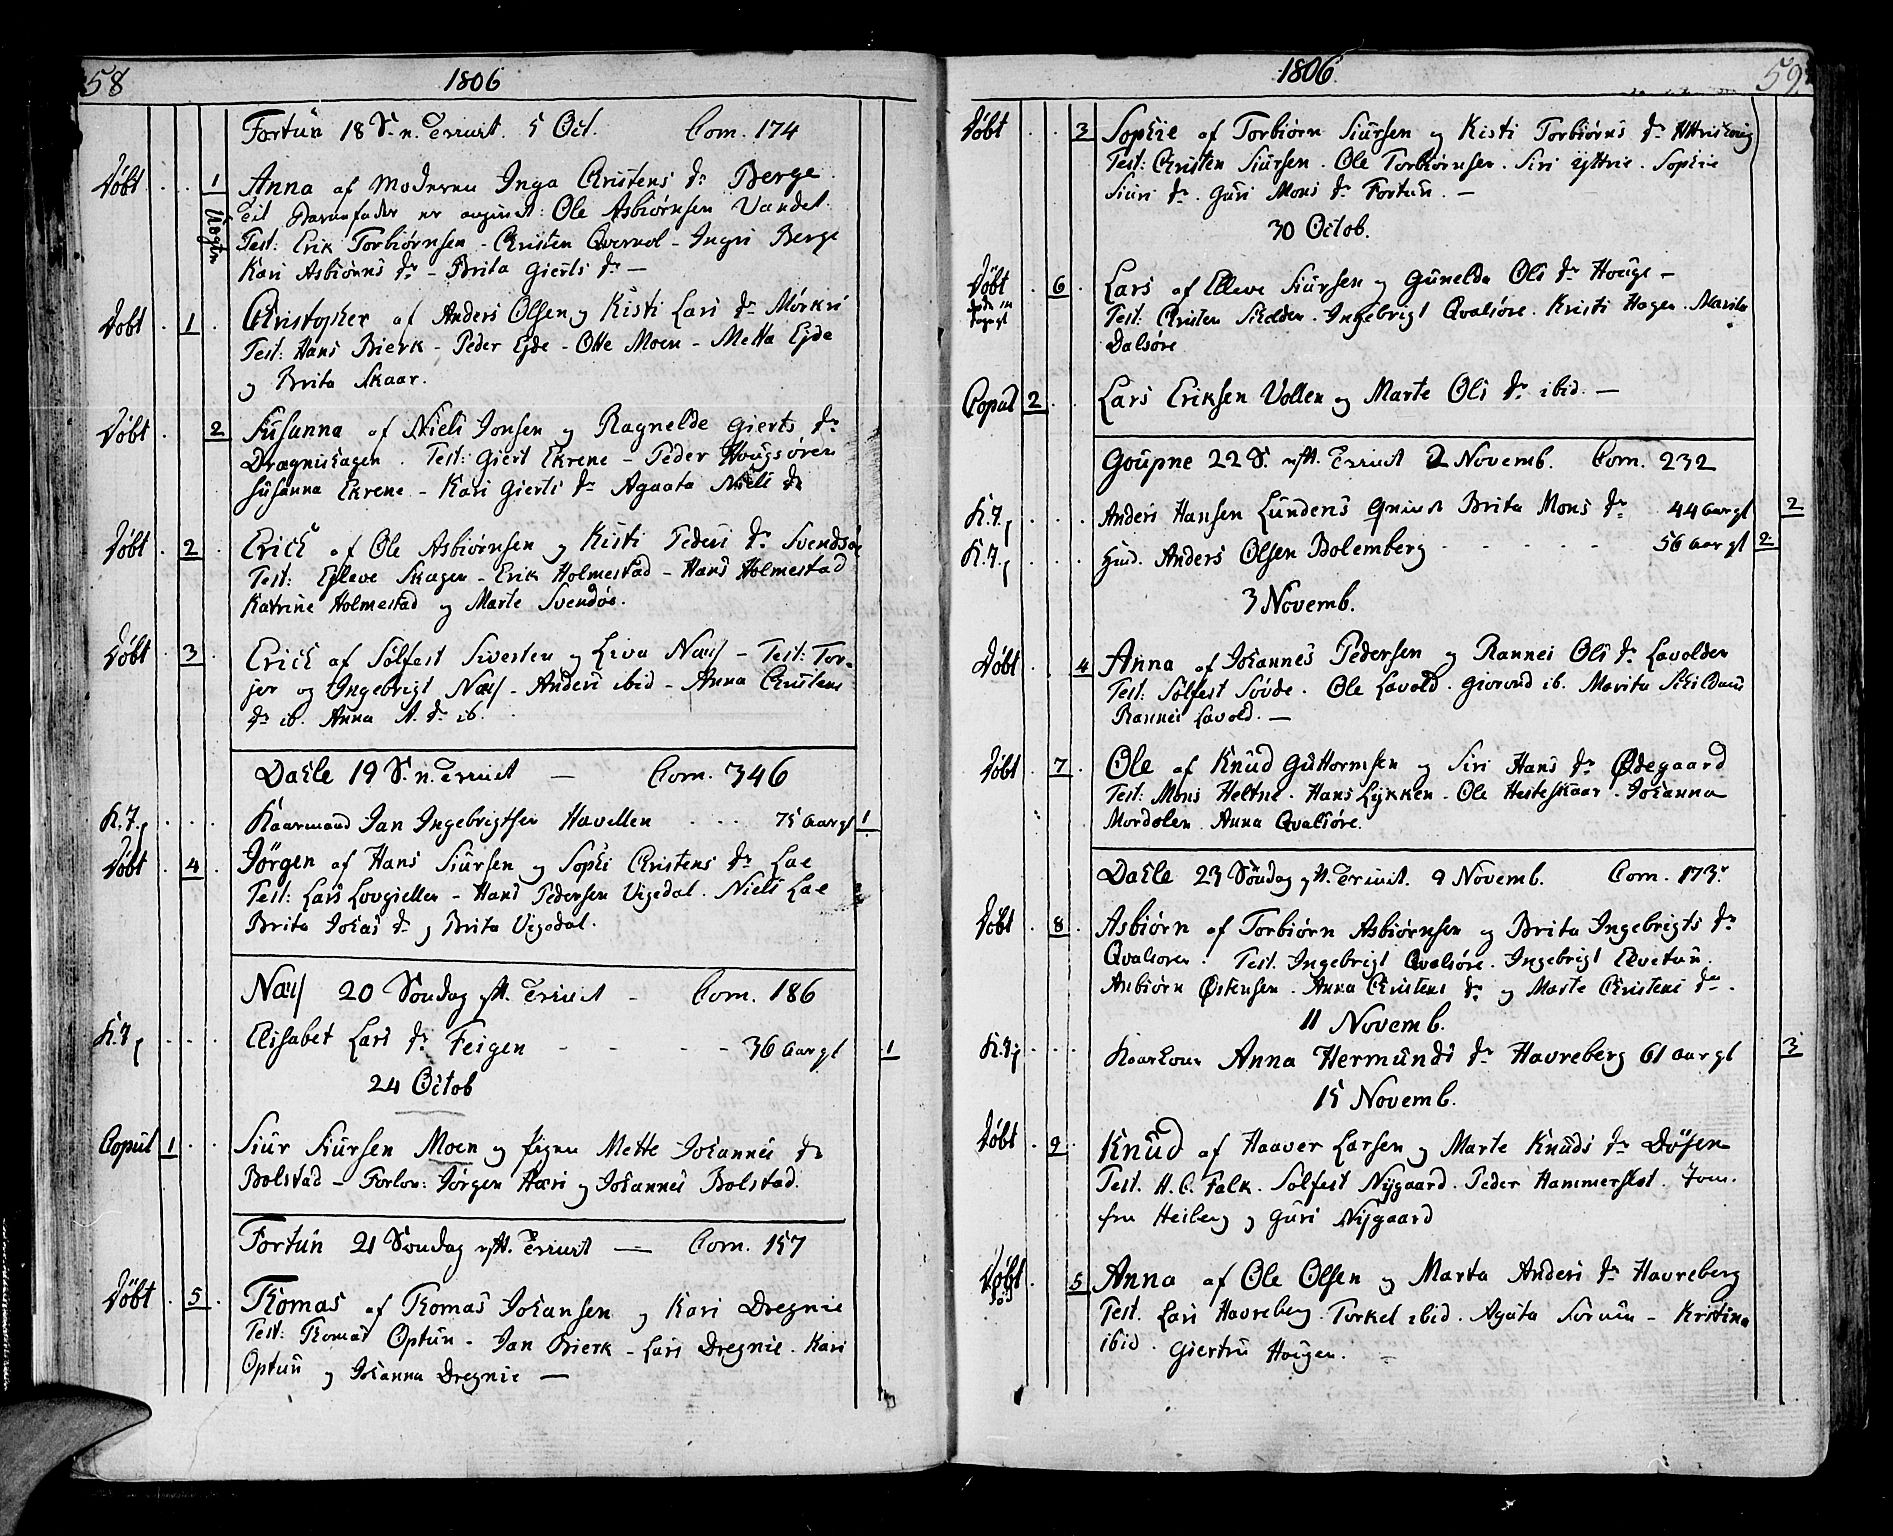 58
1806
Fortün 18 S. n. Trinit. 5 Oct. Com. 174
Døbt 1 Anna af Moderen Inga Christens Dr Berge
Uægte Til Barnefader er angivet: Ole Asbiørnsen Vandet.
Test: Erik Torbiørnsen - Christen Qvernol - Ingri Berge
Kari Asbiørns Dr - Brita Gierts Dr —
Døbt 1 Christopher af Anders Olsen og Kisti Lars Dr Mørkri
Test: Hans Bierk - Peder Ejde - Otte Moen - Metta Ejde
og Brita Skaar.
Døbt 2 Susanna af Niels Jonsen og Ragnelde Gierts Dr
Drægnishagen. Test: Giert Ekrene - Peder Hougsøren
Susanna Ekrene - Kari Gierts Dr Agaata Niels Dr
Døbt 2 Erich af Ole Asbiørnsen og Kisti Peders Dr Svendsøe
Test: Ejleve Skagen - Erik Holmestad - Hans Holmestad
Katrine Holmestad og Marte Svendøe.
Døbt 3 Erich af Solfest Sivesten og Liva Næs - Test: Tor-
jer og Ingebrigt Næs - Anders ibid - Anna Christens
Dr ib. Anna A. Dr ib.
Dahle 19 S. n. Trinit — Com. 346
K. J. Kaarmand Jan Ingebrigtsen Havellen 75 Aar gl 1
Døbt 4 Jørgen af Hans Siursen og Sophi Christens Dr Lae
Test: Lars Lovgiellen - Hans Pedersen Vigedal. Niels Lae
Brita Johas Dr og Brita Vigedal.
Næs 20 Søndag eft. Trinit - Com. 186
K. J. Elisabet Lars Dr Feigen 36 Aar gl 1
24 Octob
Copul 1 Siur Siursen Moen og Pigen Mette Johannes Dr
Bolstad - Forlov: Jørgen Hæri og Johannes Bolstad.
Fortün 21 Søndag eft. Trinit — Com. 157
Døbt 5 Thomas af Thomas Johansen og Kari Dregnie
Test: Thomas Optün - Jan Bierk - Lars Dregnie. Kari
Optün og Johanna Dregnie —
1806
59
Døbt 3 Sophie af Torbiørn Siursen og Kisti Torbiørns Dr
Test: Christen Siursen. Ole Torbiørnsen. Siri Yttrie. Sophie
Siuri Dr. Guri Mons Dr Fortün. —
30 Octob.
Døbt 6 Lars af Elleve Siursen og Gunelda Ols Dr Houge -
Test: Christen Skolden. Ingebrigt Qvalsøre. Kristi Hagen. Marita
Dalsøre
Copul 2 Lars Eriksen Vollen og Marte Ols Dr ibid. —
Goupne 22 S. eft. Trinit 2 Novemb. Com. 232
K. J. Anders Hansen Lundens Qvinde Brita Mons Dr 44 Aar gl 2
K. J. Anders Olsen Bolemberg 56 Aar gl 2
3 Novemb.
Døbt 4 Anna af Johannes Pedersen og Rannei Ols Dr Lavolden
Test: Solfest Søvde. Ole Lavold. Giorond ib. Marita
Rannei Lavold. —
Døbt 7 Ole af Knud Guttormsen og Siri Hans Dr Ødegaard
Test: Mons Heltne. Hans Lykken - Ole Hesteskaar. Johanna
Mordolen. Anna Qvalsøre.
Dahle 23 Søndag eft. Trinit. 9 Novemb. Com. 173.
Døbt 8 Asbiørn af Torbiørn Asbiørnsen og Brita Ingebrigts Dr
Qvalsøren. Test. Ingebrigt Qvalsøre. Ingebrigt Elvetun.
Anbiørn Østensen. Anna Christens Dr og Marte Christens Dr.
11 Novemb.
K. J. Kaarkone Anna Hermunds Dr Havreberg 61 Aar gl 3
15 Novemb.
Døbt 9 Knud af Haaver Larsen og Marte Knuds Dr Døsen
Test. H. C. Falk. Solfest Nygaard. Peder Hammerslot. Jom-
fru Heiberg og Guri Nygaard
Døbt 5 Anna af Ole Olsen og Marta Anders Dr Havreberg
Test. Lars Havreberg. Torkel ibid. Agata Sorum - Kristina
ibid. Giertru Hougen.